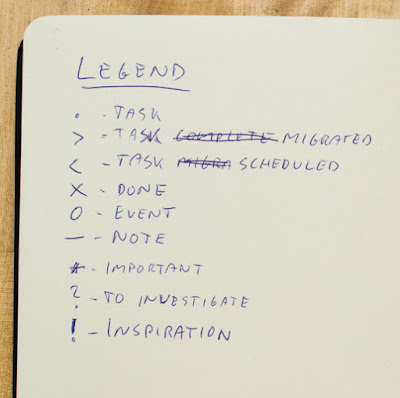 LEGEND
• - TASK
> - TASK ~~COMPLETE~~ MIGRATED
< - TASK ~~MIGRA~~ SCHEDULED
X - DONE
O - EVENT
— - NOTE
* - IMPORTANT
? - TO INVESTIGATE
! - INSPIRATION